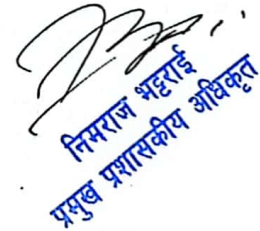 निमराज भट्टराई
प्रमुख प्रशासकीय अधिकृत